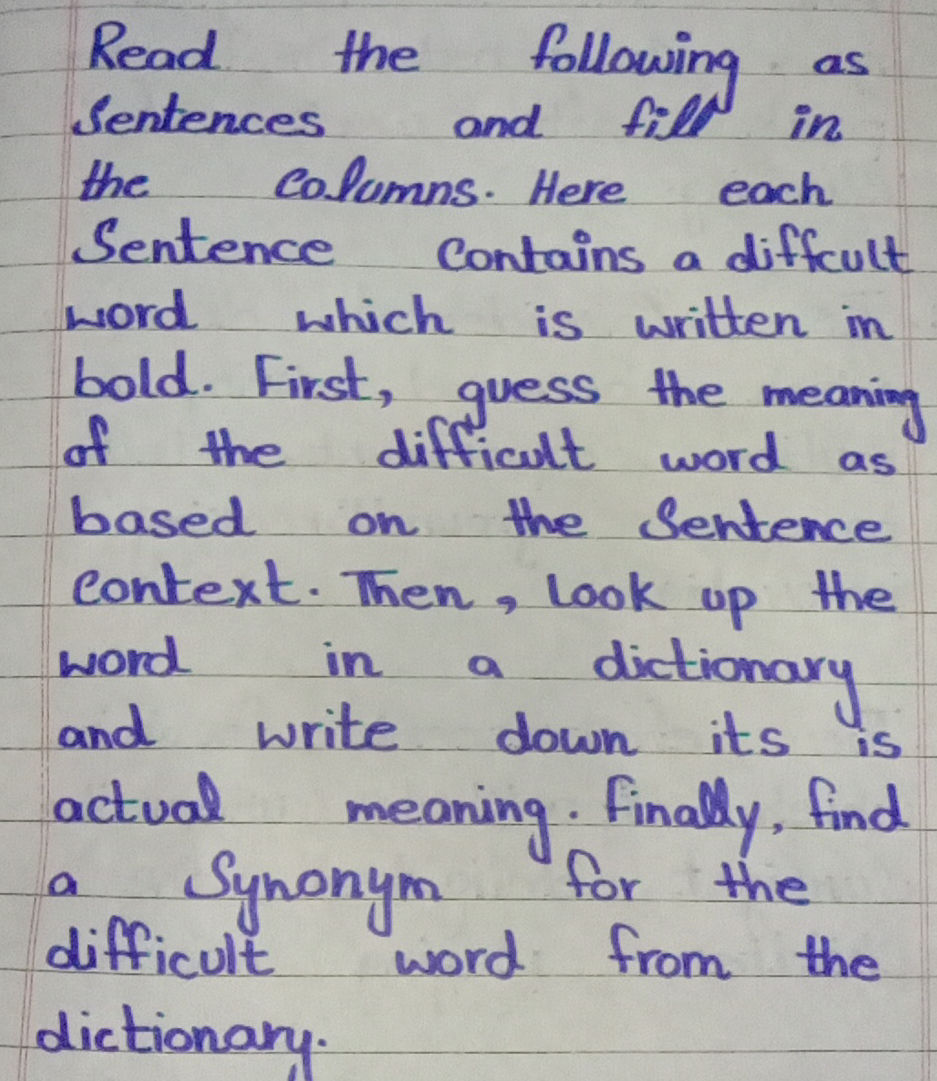 Read the following as
Sentences and fill in
the columns. Here each
Sentence Contains a diffcult
word which is written in
bold. First, guess the meaning
of the difficult word as
based on the Sentence
Context. Then, Look up the
word in a dictionary
and write down its is
actual meaning. Finally, find
a Synonym for the
difficult word from the
dictionary.